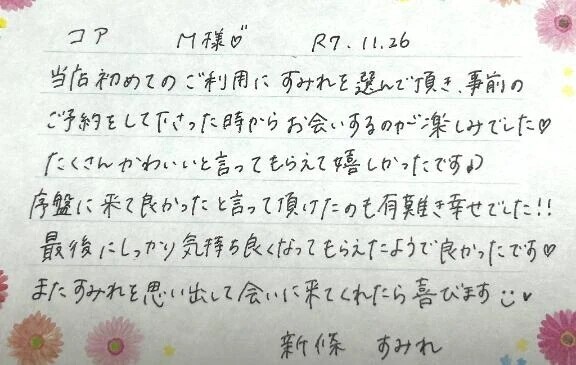 コア M様♡ R7.11.26
当店初めてのご利用にすみれを選んで頂き、事前の
ご予約をして下さった時からお会いするのがご楽しみでした♡
たくさんかわいいと言ってもらえて嬉しかったです♪
序盤に来て良かったと言って頂けたのも有難き幸せでした!!
最後にしっかり気持ち良くなってもらえたようで良かったです♡
またすみれを思い出して会いに来てくれたら喜びます☺♥
新條 すみれ